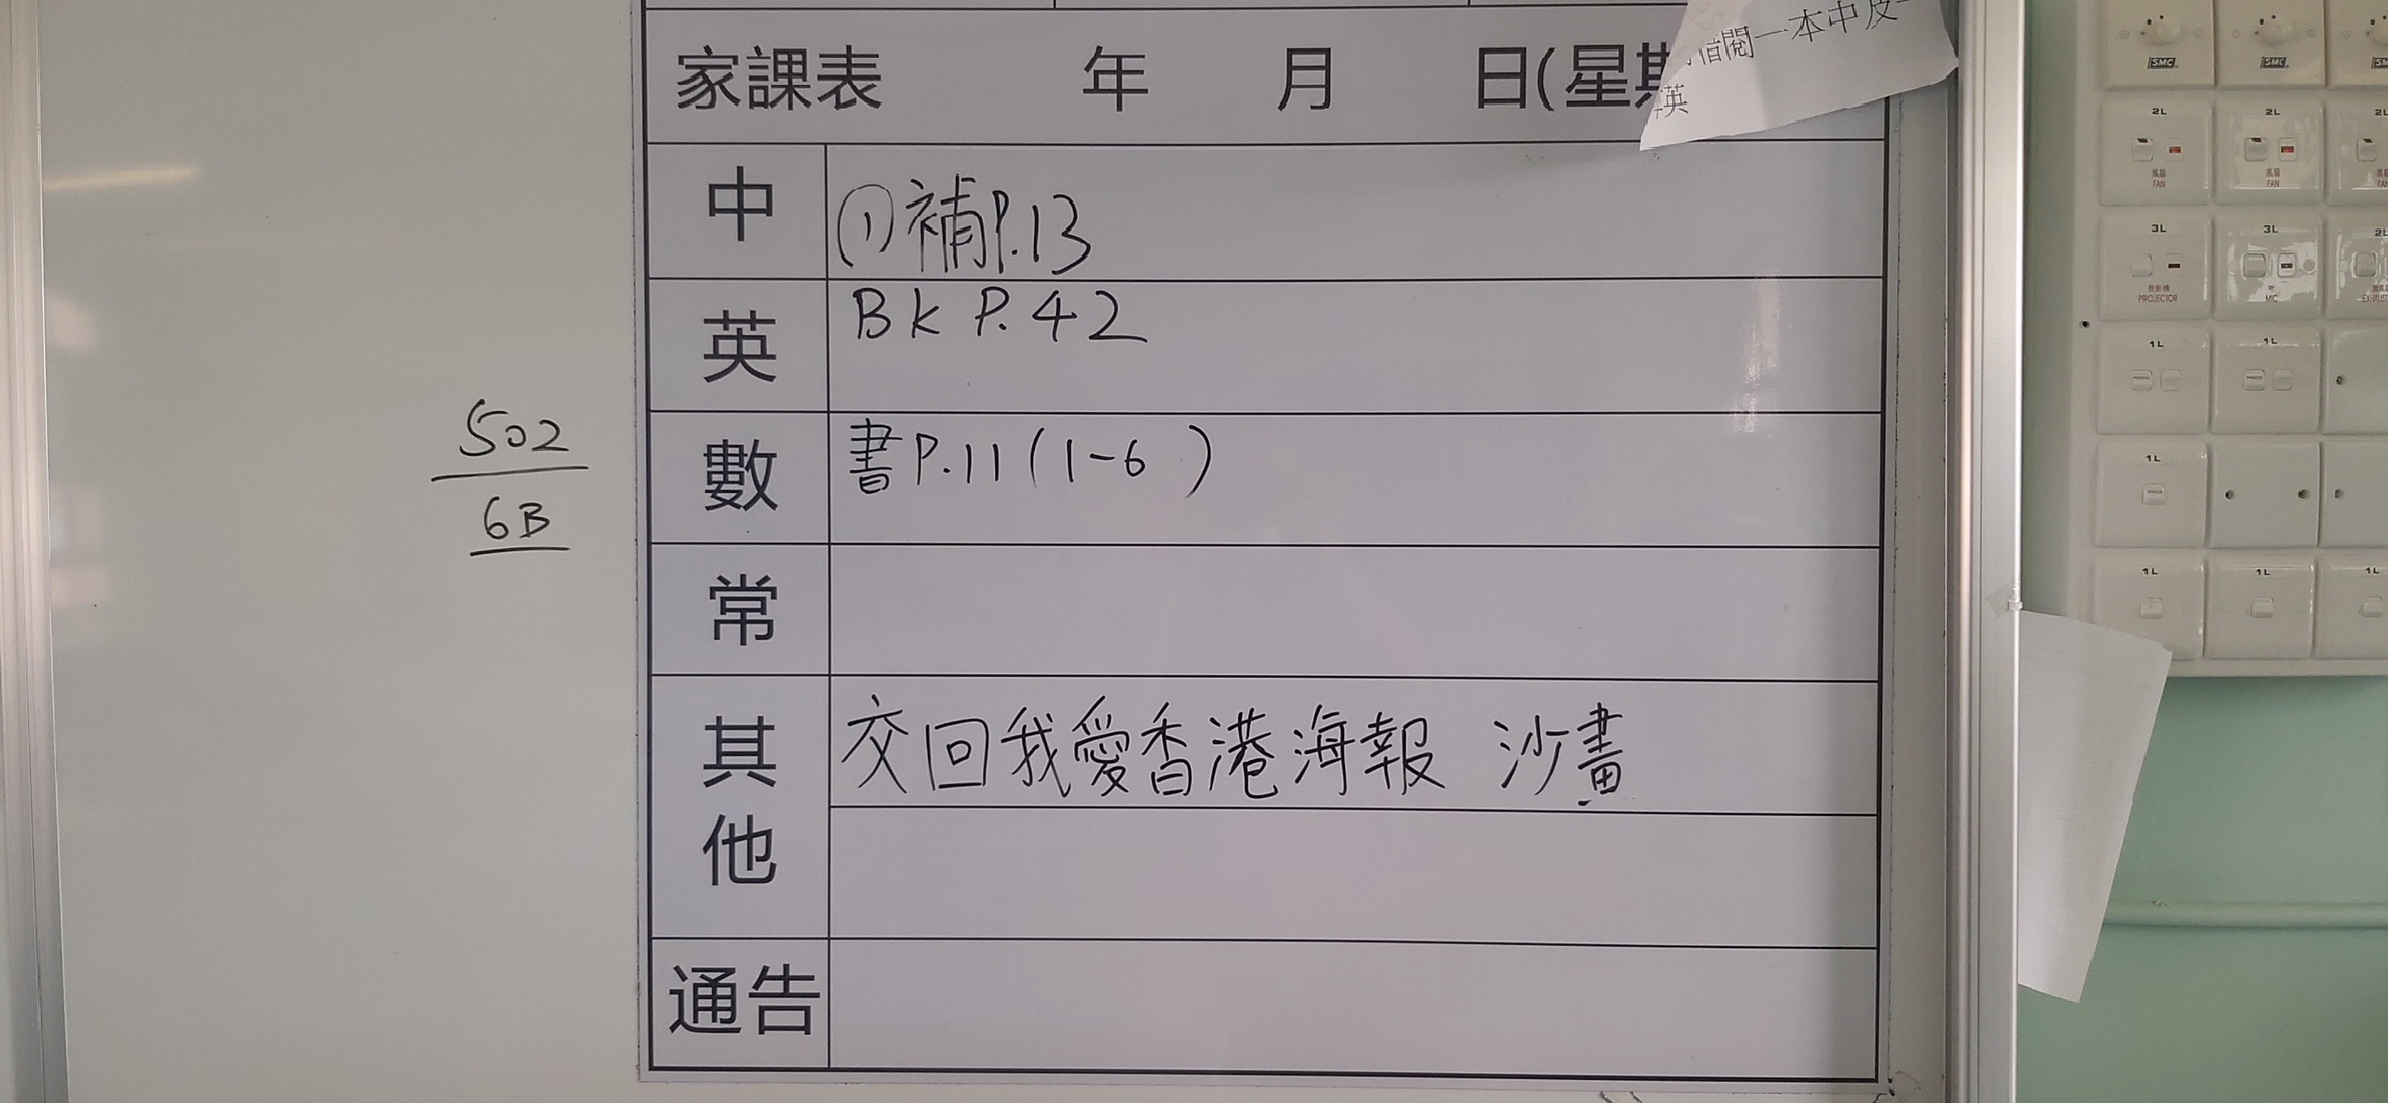 借閱一本中
英
家課表 年 月 日(星期
中 ①補P.13
英 BK P.42
數 書P.11(1-6 )
常
其他 交回我愛香港海報 沙畫
通告
502
6B
SMC SMC
2L 2L 2L
風扇 風扇
FAN FAN
3L 3L 2L
投影機 咪
PROJECTOR MIC
1L 1L
1L
1L 1L 1L